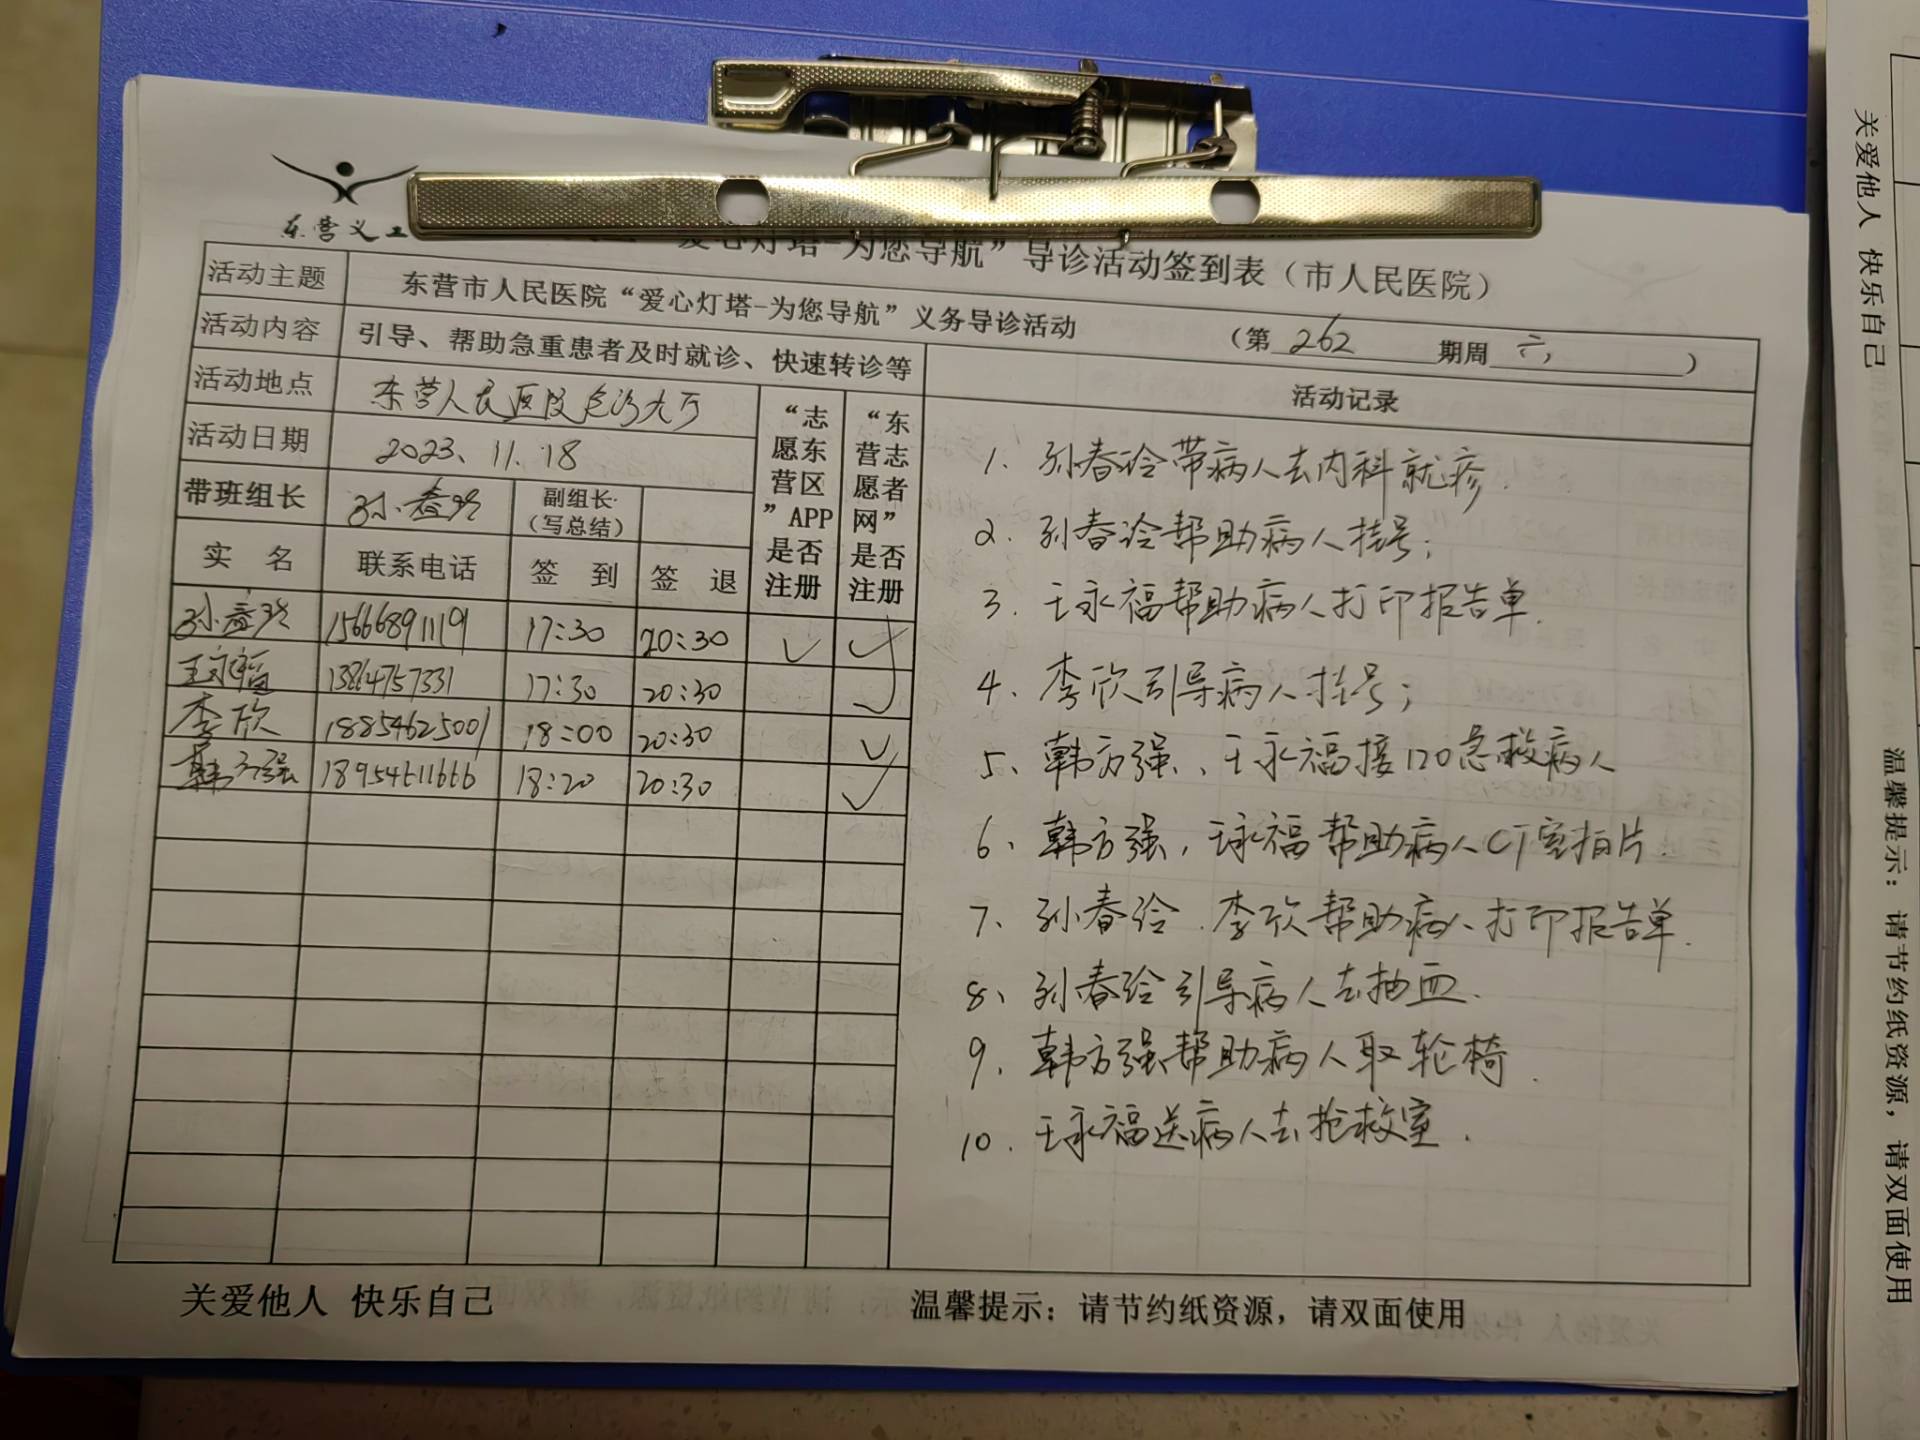 东营义工
爱心灯塔-为您导航”导诊活动签到表（市人民医院）
活动主题 东营市人民医院“爱心灯塔-为您导航”义务导诊活动 （第 262 期周 六 ）
活动内容 引导、帮助急重患者及时就诊、快速转诊等
活动地点 东营人民医院急诊大厅
活动日期 2023、11.18
带班组长 孙春玲 副组长（写总结）
实名 联系电话 签到 签退 “志愿东营区”APP是否注册 “东营志愿者网”是否注册
孙春玲 15666891119 17:30 20:30 ✓ ✓
王永福 13864757331 17:30 20:30 ✓
李欣 18854625001 18:00 20:30 ✓
韩方强 18954611666 18:20 20:30 ✓
活动记录
1. 孙春玲带病人去内科就诊.
2. 孙春玲帮助病人挂号;
3. 王永福帮助病人打印报告单.
4、李欣引导病人挂号;
5、韩方强、王永福接120急救病人
6、韩方强,王永福帮助病人CT室拍片.
7、孙春玲.李欣帮助病人打印报告单.
8、孙春玲引导病人去抽血.
9、韩方强帮助病人取轮椅.
10.王永福送病人去抢救室.
关爱他人 快乐自己
温馨提示：请节约纸资源，请双面使用
关爱他人 快乐自己
温馨提示：请节约纸资源，请双面使用